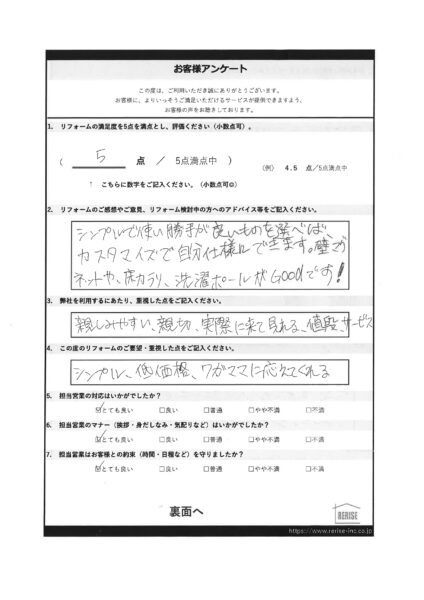 お客様アンケート
この度は、ご利用いただき誠にありがとうございます。
お客様に、よりいっそうご満足いただけるサービスが提供できますよう、
お客様の声をお聴きしております。
1. リフォームの満足度を5点を満点とし、評価ください（小数点可）。
（ 5 点 ／ 5点満点中 ）
（例） 4.5 点／5点満点中
↑ こちらに数字をご記入ください。（小数点可◎）
2. リフォームのご感想やご意見、リフォーム検討中の方へのアドバイス等をご記入ください。
シンプルで使い勝手が良いものを選べば、
カスタマイズで自分仕様にできます。壁マグ
ネットや、床カラリ、洗濯ポールがGoodです!
3. 弊社を利用するにあたり、重視した点をご記入ください。
親しみやすい、親切、実際に来て見れる、値段、サービス
4. この度のリフォームのご要望・重視した点をご記入ください。
シンプル、低価格、ワガママに応えてくれる
5. 担当営業の対応はいかがでしたか？
☑とても良い □良い □普通 □やや不満 □不満
6. 担当営業のマナー（挨拶・身だしなみ・気配りなど）はいかがでしたか？
☑とても良い □良い □普通 □やや不満 □不満
7. 担当営業はお客様との約束（時間・日程など）を守りましたか？
☑とても良い □良い □普通 □やや不満 □不満
裏面へ
RERISE
https://www.rerise-inc.co.jp